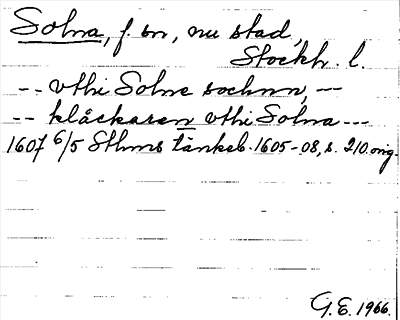 Solna, f. sn, nu stad,
Stockh. l.
-- vthi Solne sochnn, --
-- klåckaren vthi Solna ---
1607 6/5 Sthms tänkeb. 1605-08, s. 210. orig.
G.E. 1966.